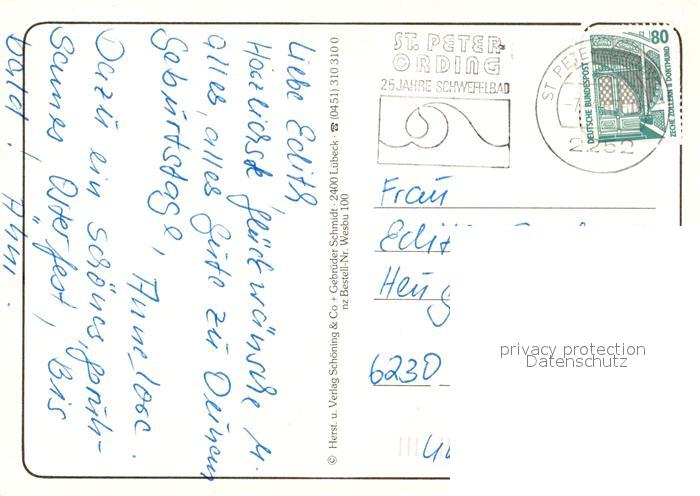 Liebe Edith,
Herzlichste Glückwünsche u.
alles, alles Gute zu Deinem
Geburtstage, Annelose.
Dazu ein schönes, geruh-
sames Osterfest, bis
bald!
© Herst. u. Verlag Schöning & Co + Gebrüder Schmidt · 2400 Lübeck · ☎ (0451) 310 310 0
nz Bestell-Nr. Wesbu 100
ST. PETER-
ORDING
25 JAHRE SCHWEFELBAD
ST. PETE
2252
80
DEUTSCHE BUNDESPOST
ZECHE ZOLLERN II DORTMUND
Frau
6230
privacy protection
Datenschutz